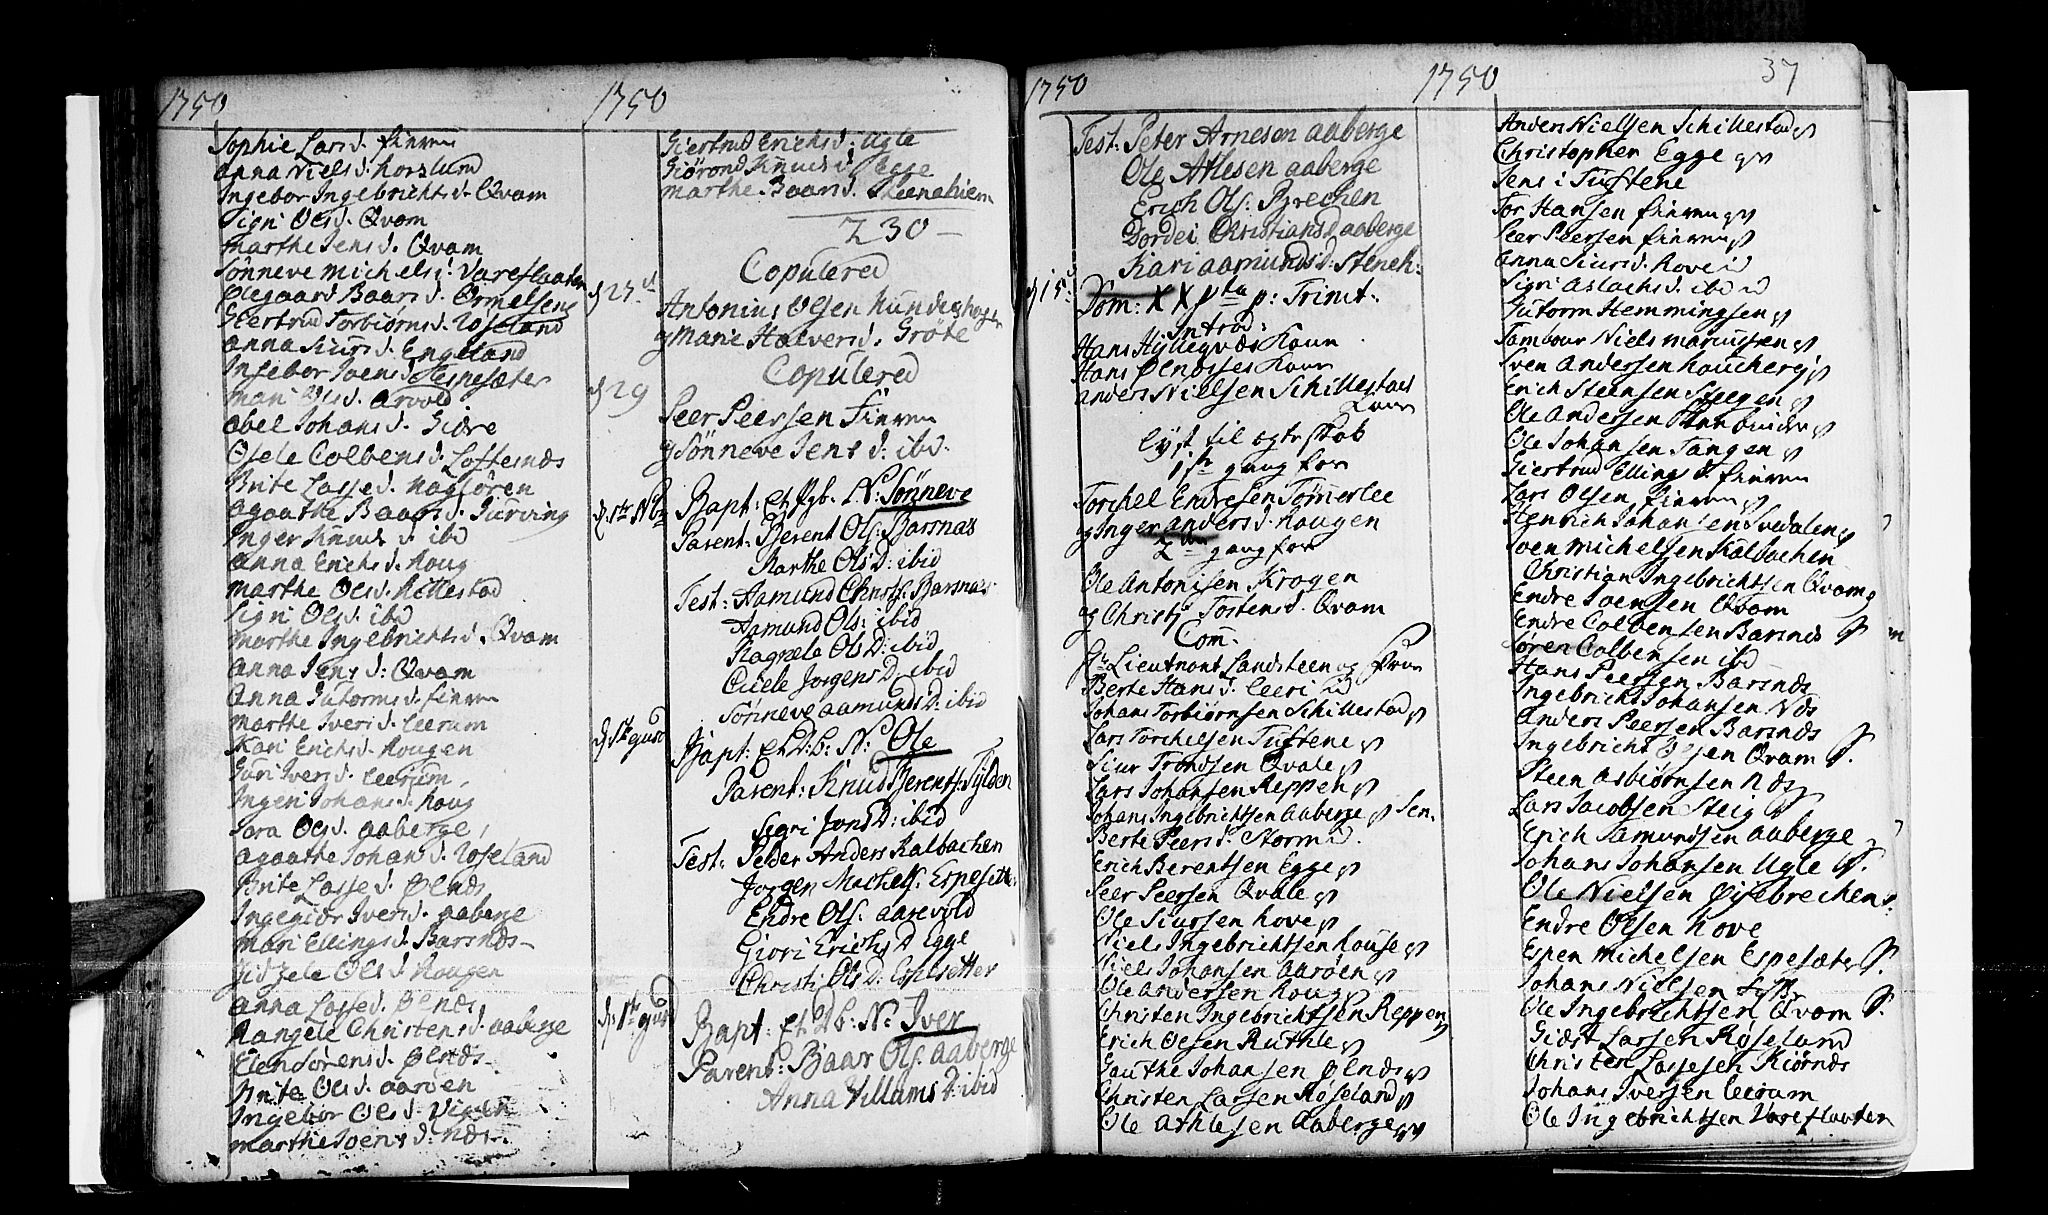 1750
Sophie Lars d. finven
Anna Niels d. Korslund
Ingebor Ingebrichts d. Qvam
Sigri Ols d. Qvam
Marthe Jens d. Qvam
Sönneve Michels d. Vareflaaten
Olegaard Baars d. Ormelsens
Giertrud Torbiörns d. Röseland
Anna Siurs d. Engeland
Ingebor Joens d. Espesæter
Mari Ols d. Arvold
Abel Johans d. Gidre
Osele Colbens d. Loftesnæs
Brite Lasse d. Nagløren
Agaathe Baars d. Turving
Inger Knuds d. ibd
Anna Erichs d. Houg
Marthe Ols d. Hillestad
Sigri Ols d. ibd
Marthe Ingebrichts d. Qvam
Anna Jens d: Qvam
Anna Gutorms d. finven
Marthe Ivers d. leerum
Kari Erichs d. Hougen
Guri Ivers d. leerum
Ingeri Johans d. Houg
Sara Ols d. aaberge
Agaathe Johans d. Röseland
Brite Lasse d. Ølnæs
Ingegiör Ivers d. aaberge
Mari Ellings d. Barsnæs
Gidzele Ols d. Hougen
Anna Lasse d. Ølnæs
Rangele Christens d. aaberge
Elen Sörens d. Ølnæs
Brite Ols d. aaröen
Ingebor Ols d. Vigen
Marthe Joens d: Næs
1750
Giertrud Erichs d: Ugle
Giörond Knuds d: Egge
Marthe Baars d. Steenehiem
230 -
Copulered
d 25
Antonius Olsen Hundershougen
og Marie Halvers d. Gröte
Copulered
d 29
Peer Peersen Finven
og Sönneve Jens d: ibd.
d. 1ste Nov
Bapt: Et Pgb. N: Sönneve
Parent: Berent Ols: Barsnæs
Marthe Ols D: ibid
Test: Aamund Christs. Barsnæs
Aamund Ols: ibid
Ragnele Ols D: ibid
Ciele Jorgens D. ibid
Sönneve Aamunds D: ibid
Bapt: Et D.b: N: Ole
Parent: Knud Berents: Fylden
Sigri Jons D: ibid
Test: Peder Anders Kalbachen
Jorgen Machels. Espeset
Endre Ols. aarevold
Giori Erichs D Egge
Christi Ols D: Espesetter
Bapt: Et Db: N: Iver
Parent: Baar Ols. aaberge
Anna Villums D: ibid
1750
Test: Peter Arnesen aaberge
Ole Atlesen aaberge
Erich Ols. Brechen
Dordei Christians D aaberge
Kari aamunds d: Steneh:
d 15
Dom: XX pta p: Trinit:
Introd:
Hans Hyllegvæs Kone
Hans Ølnæsses Kone
Anders Nielsen Schillestads
Kone
lyst til egteskab
1ste gang for
Torchel Endresen Tönnerlee
og Inger Anders d. Hougen
2den gang for
Ole Antonisen Krogen
og Christi Tostens d. Qvam
Com.
Hr Lieutnant Landsteen og frue
Berte Hans d. leeri
Johans Torbiörnsen Schillestad
Lars Torchelsen Tuftene
Siur Trondsen Qvale
Lars Johansen Reppen
Johans Ingebrichtsen Aaberge Sen.
Berte Peers d. Storm
Erich Berentsen Egge
Peer Peersen Qvale
Ole Siursen Hove
Niels Ingebrichtsen House
Niels Johansen Aaröen
Ole Andersen Houg
Christen Ingebrichtsen Reppen
Erich Olsen Ruthle
Gauthe Johansen Ølnæs
Christen Larsen Röseland
Ole Athlesen Aaberge
1750
37
Anders Nielsen Schillestad
Christopher Egge
Jens i Tuftene
Tor Hansen finven
Peer Peersen finven
Anna Siurs d. Hove
Sigri Aslachs d. ibd
Gutorm Hemmingsen
Tambour Niels Marcussen
Sven Andersen Houcherg
Erich Steensen Steegen
Ole Andersen
Ole Johansen Tangen
Giertrud Ellings d. finven
Lars Olsen finven
Henrich Johansen Svedalen
Sven Michelsen Kalbachen
Christian Ingebrichtsen Qvam
Endre Joensen Qvam
Endre Colbensen Barsnæs
Sören Colbensen ibd
Hans Peersen Barsnæs
Ingebricht Johansen Næs
Anders Peersen Barsnæs
Ingebricht Olsen Qvam
Steen Asbiörnsen Næs
Lars Jacobsen Steig
Erich Samundsen aaberge
Johans Johansen Ugle
Ole Nielsen Öisebrechen
Endre Olsen Hove
Espen Michelsen Espesæter
Johans Nielsen
Ole Ingebrichtsen Qvam
Gidst Larsen Röseland
Christen Lassesen Kiörnæs
Johans Iversen leerum
Ole Ingebrichtsen Vareflaaten